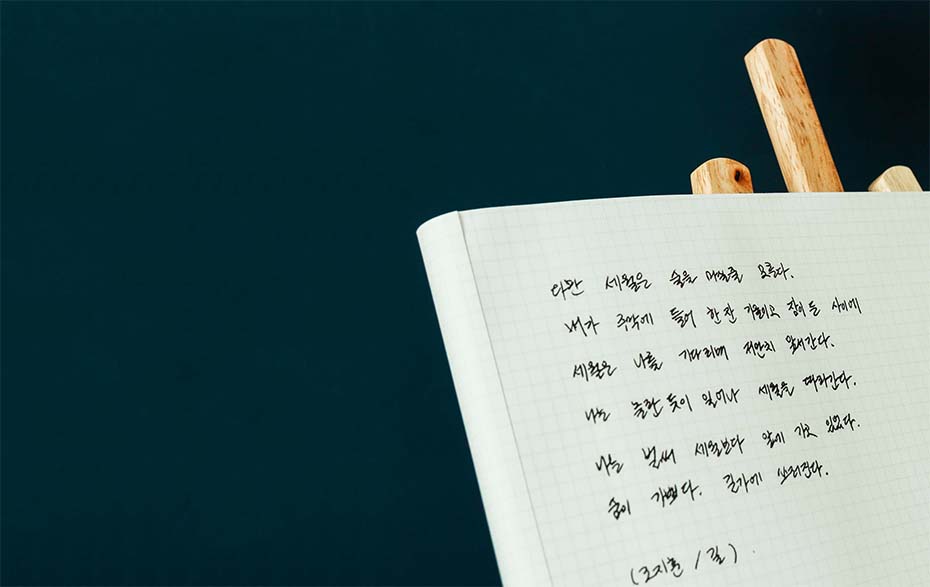 다만 세월은 술을 마실줄 모른다.
내가 주막에 들어 한 잔 기울이고 잠이 든 사이에
세월은 나를 기다리며 저만치 앞서간다.
나는 놀란 듯이 일어나 세월을 따라간다.
나는 벌써 세월보다 앞에 가고 있었다.
숨이 가쁘다. 길가에 쓰러진다.
(조지훈 / 길)